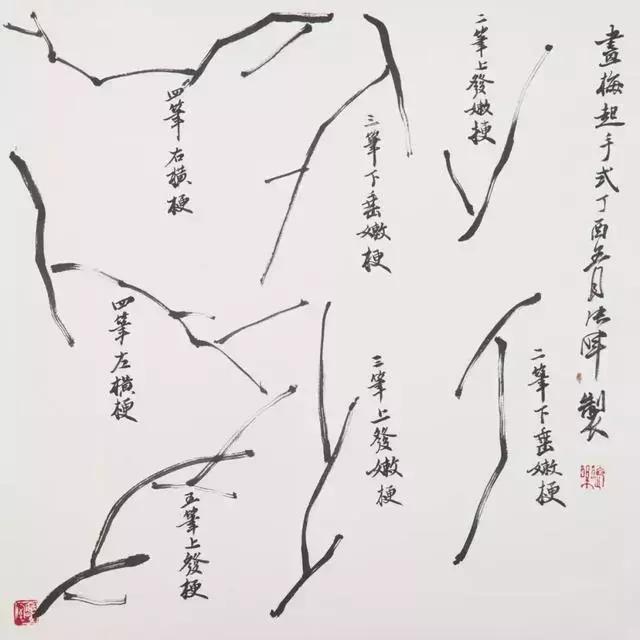 畫梅起手式丁酉月製
二筆上發嫩梗
三筆下垂嫩梗
四筆右橫梗
二筆下垂嫩梗
三筆上發嫩梗
四筆左橫梗
五筆上發梗